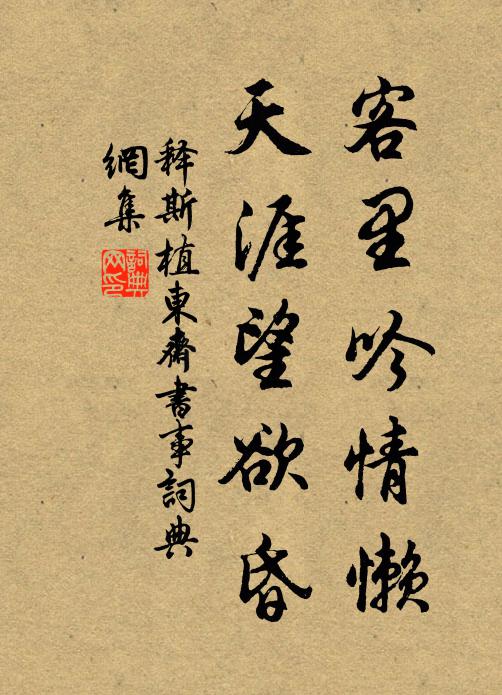 客里吟情懒
天涯望欲昏
释斯植東齋書事詞典
網集
詞典網印